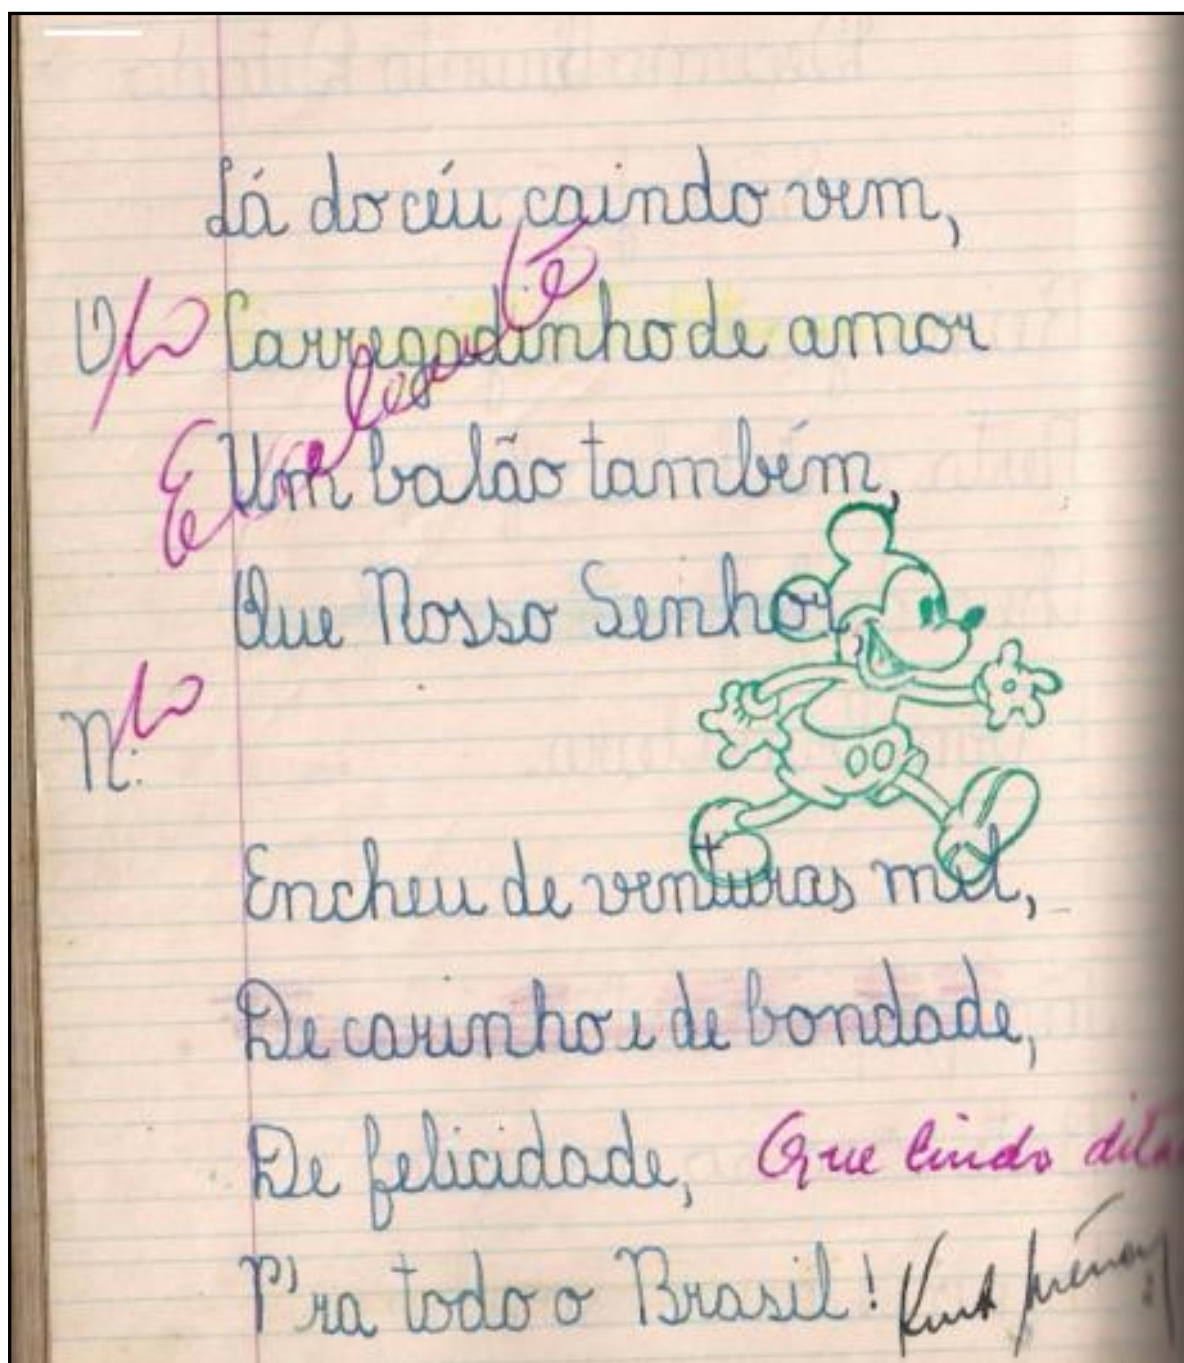 Lá do céu caindo vem,
Carregadinho de amor
Um balão também,
Que Nosso Senhor,
N.
Encheu de venturas mil,
De carinho e de bondade,
De felicidade,
Que lindo dita
P'ra todo o Brasil!